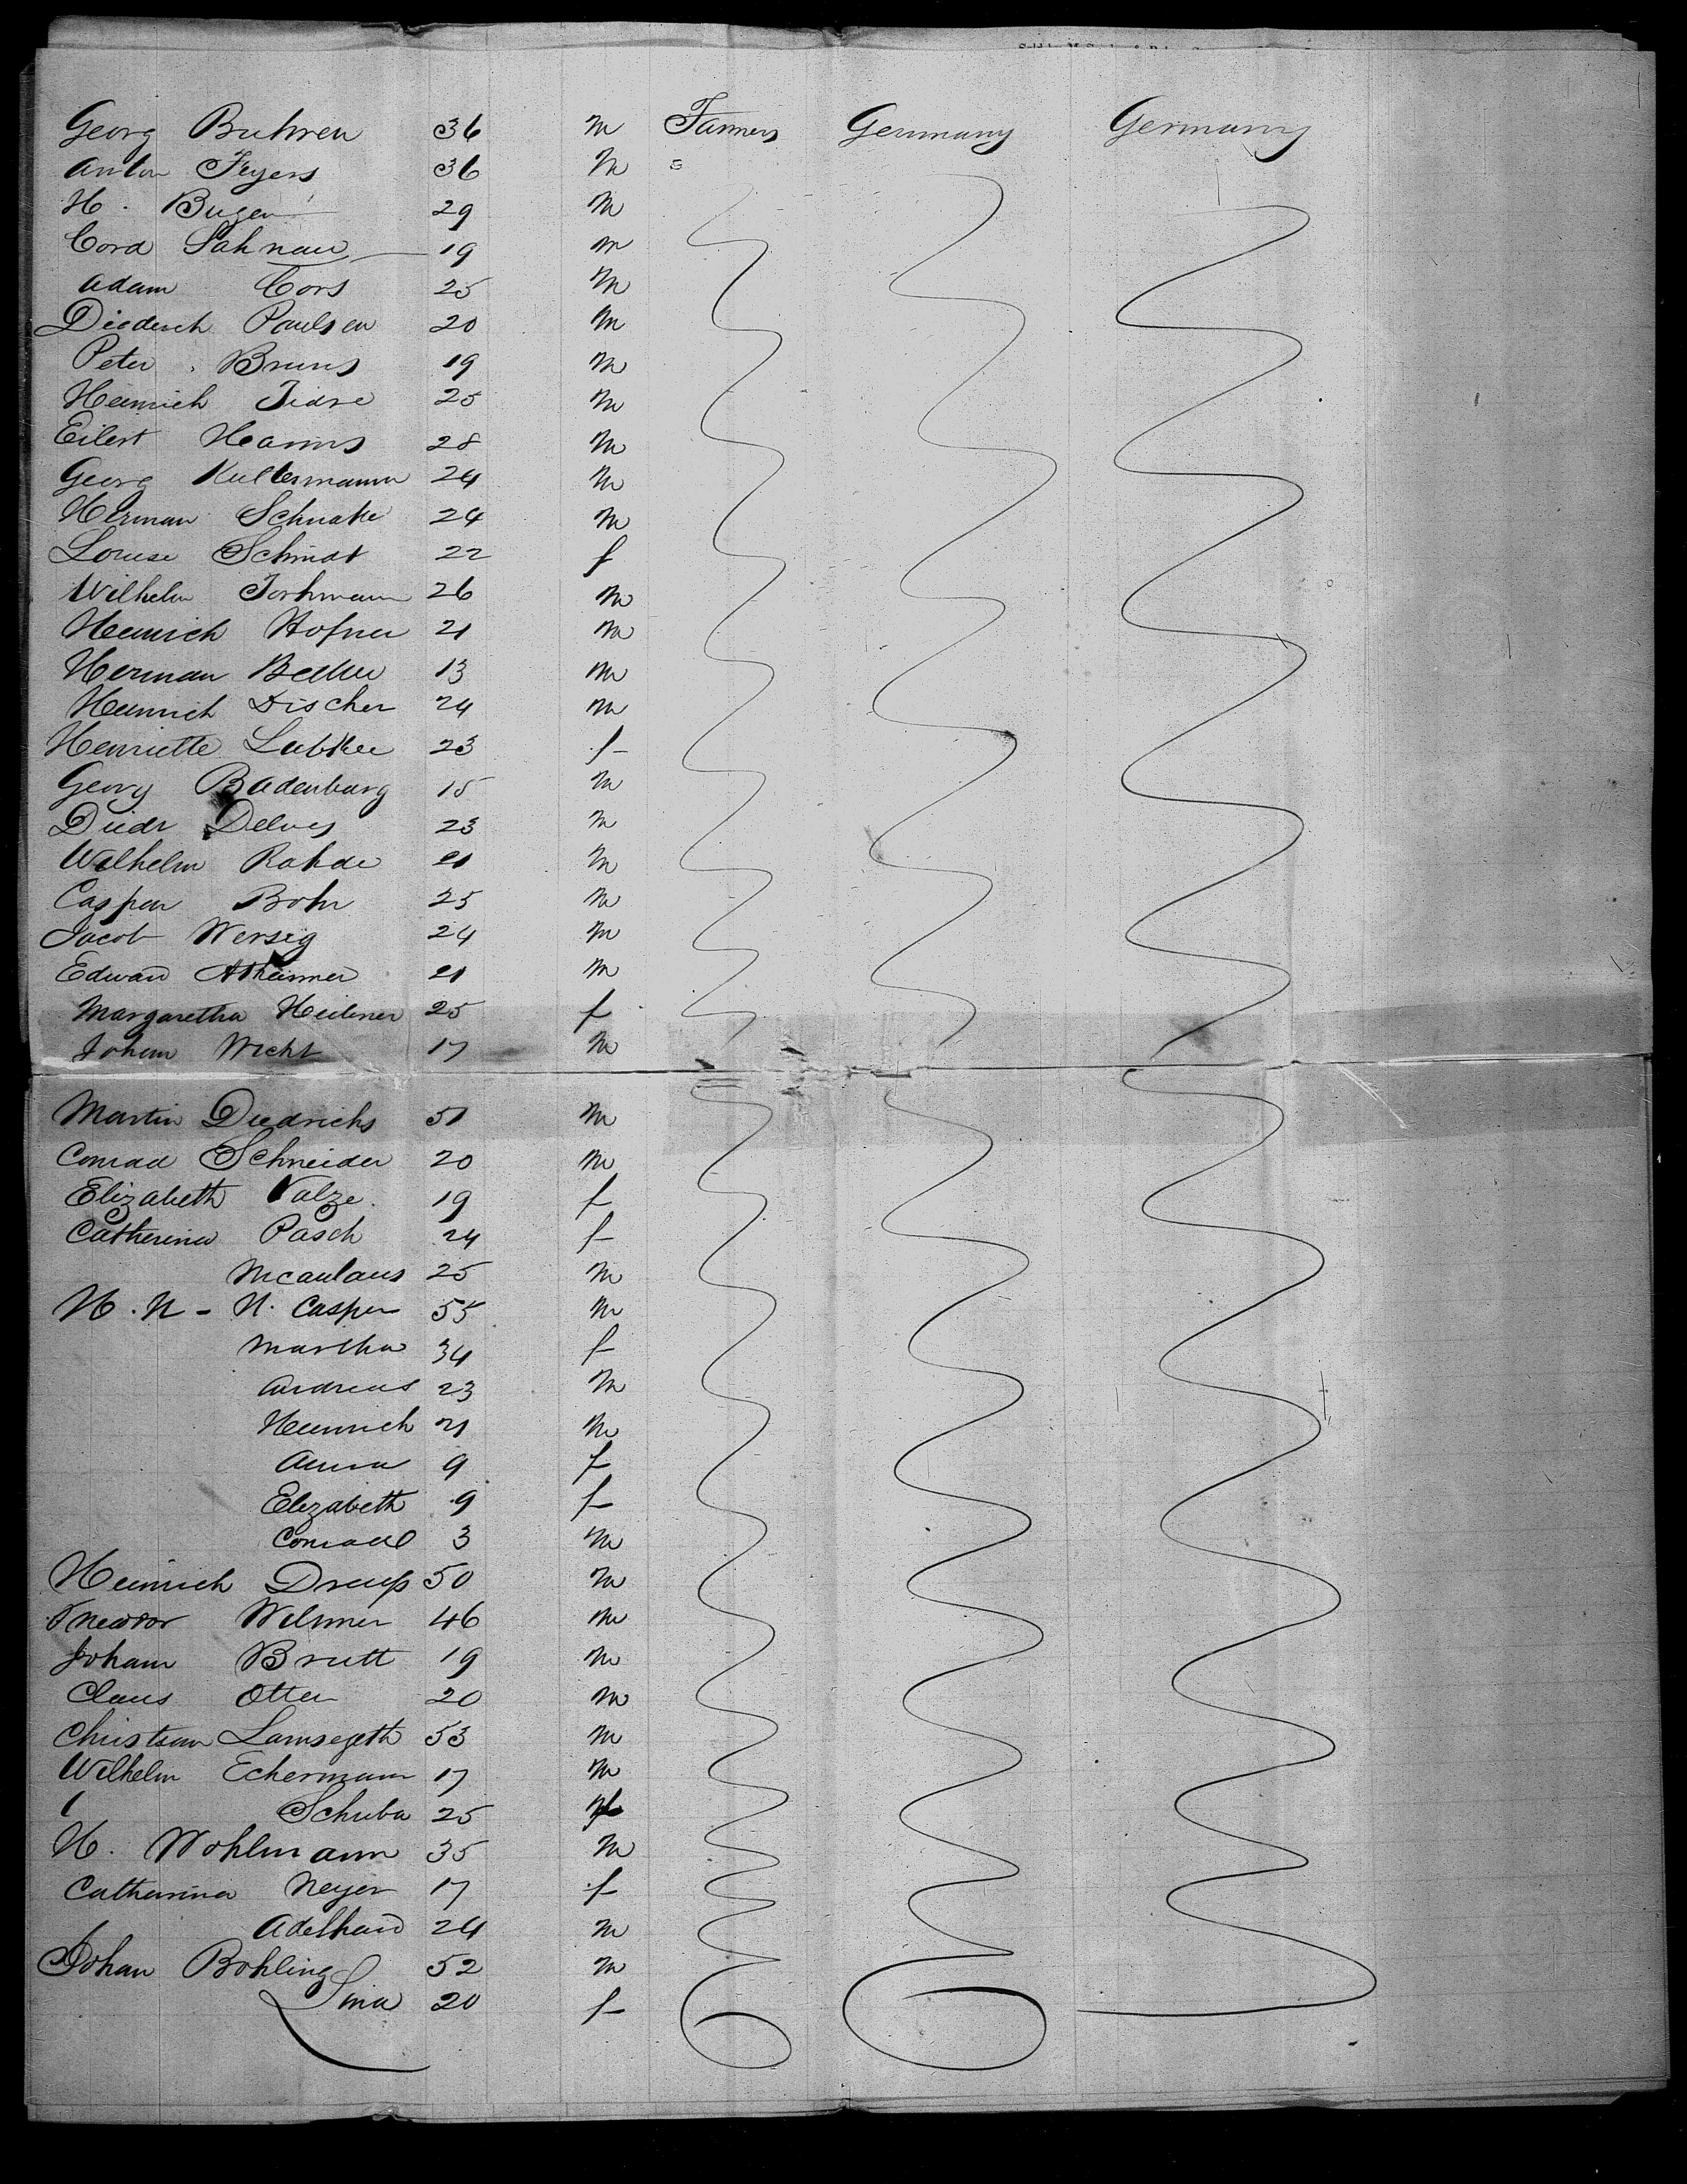 Georg Buhren 36 m Farmers Germany Germany
Anton Feyers 36 m =
H. Bugen 29 m
Cord Sahnau 19 m
Adam Cors 25 m
Diederich Paulsen 20 m
Peter Bruns 19 m
Heinrich 25 m
Eilert Harms 28 m
Georg Kullermann 24 m
Herman Schnake 24 m
Louise Schmidt 22 f
Wilhelm 26 m
Heinrich Hofner 21 m
Herman 13 m
Heinrich Discher 24 m
Henriette Lubker 23 f
Georg Badenburg 15 m
Diedr Delves 23 m
Wilhelm Rohde 21 m
Caspar Bohr 25 m
Jacob Wersig 24 m
Edward 21 m
Margaretha Heibner 25 f
Johann Wicht 17 m
Martin Diedrichs 51 m
Conrad Schneider 20 m
Elizabeth Valze 19 f
Catherina Pasch 24 f
25 m
H. N - N. Casper 55 m
Martha 34 f
Andreas 23 m
Heinrich 21 m
Anna 9 f
Elizabeth 9 f
Conrad 3 m
Heinrich 50 m
Theodor Wilmer 46 m
Johann Brutt 19 m
Claus Otten 20 m
Christian 53 m
Wilhelm Eckermann 17 m
Schuba 25
H. Wohlmann 35 m
Catharina Neyer 17 f
Adelhaid 24 m
Johan Bohling 52 m
Lina 20 f